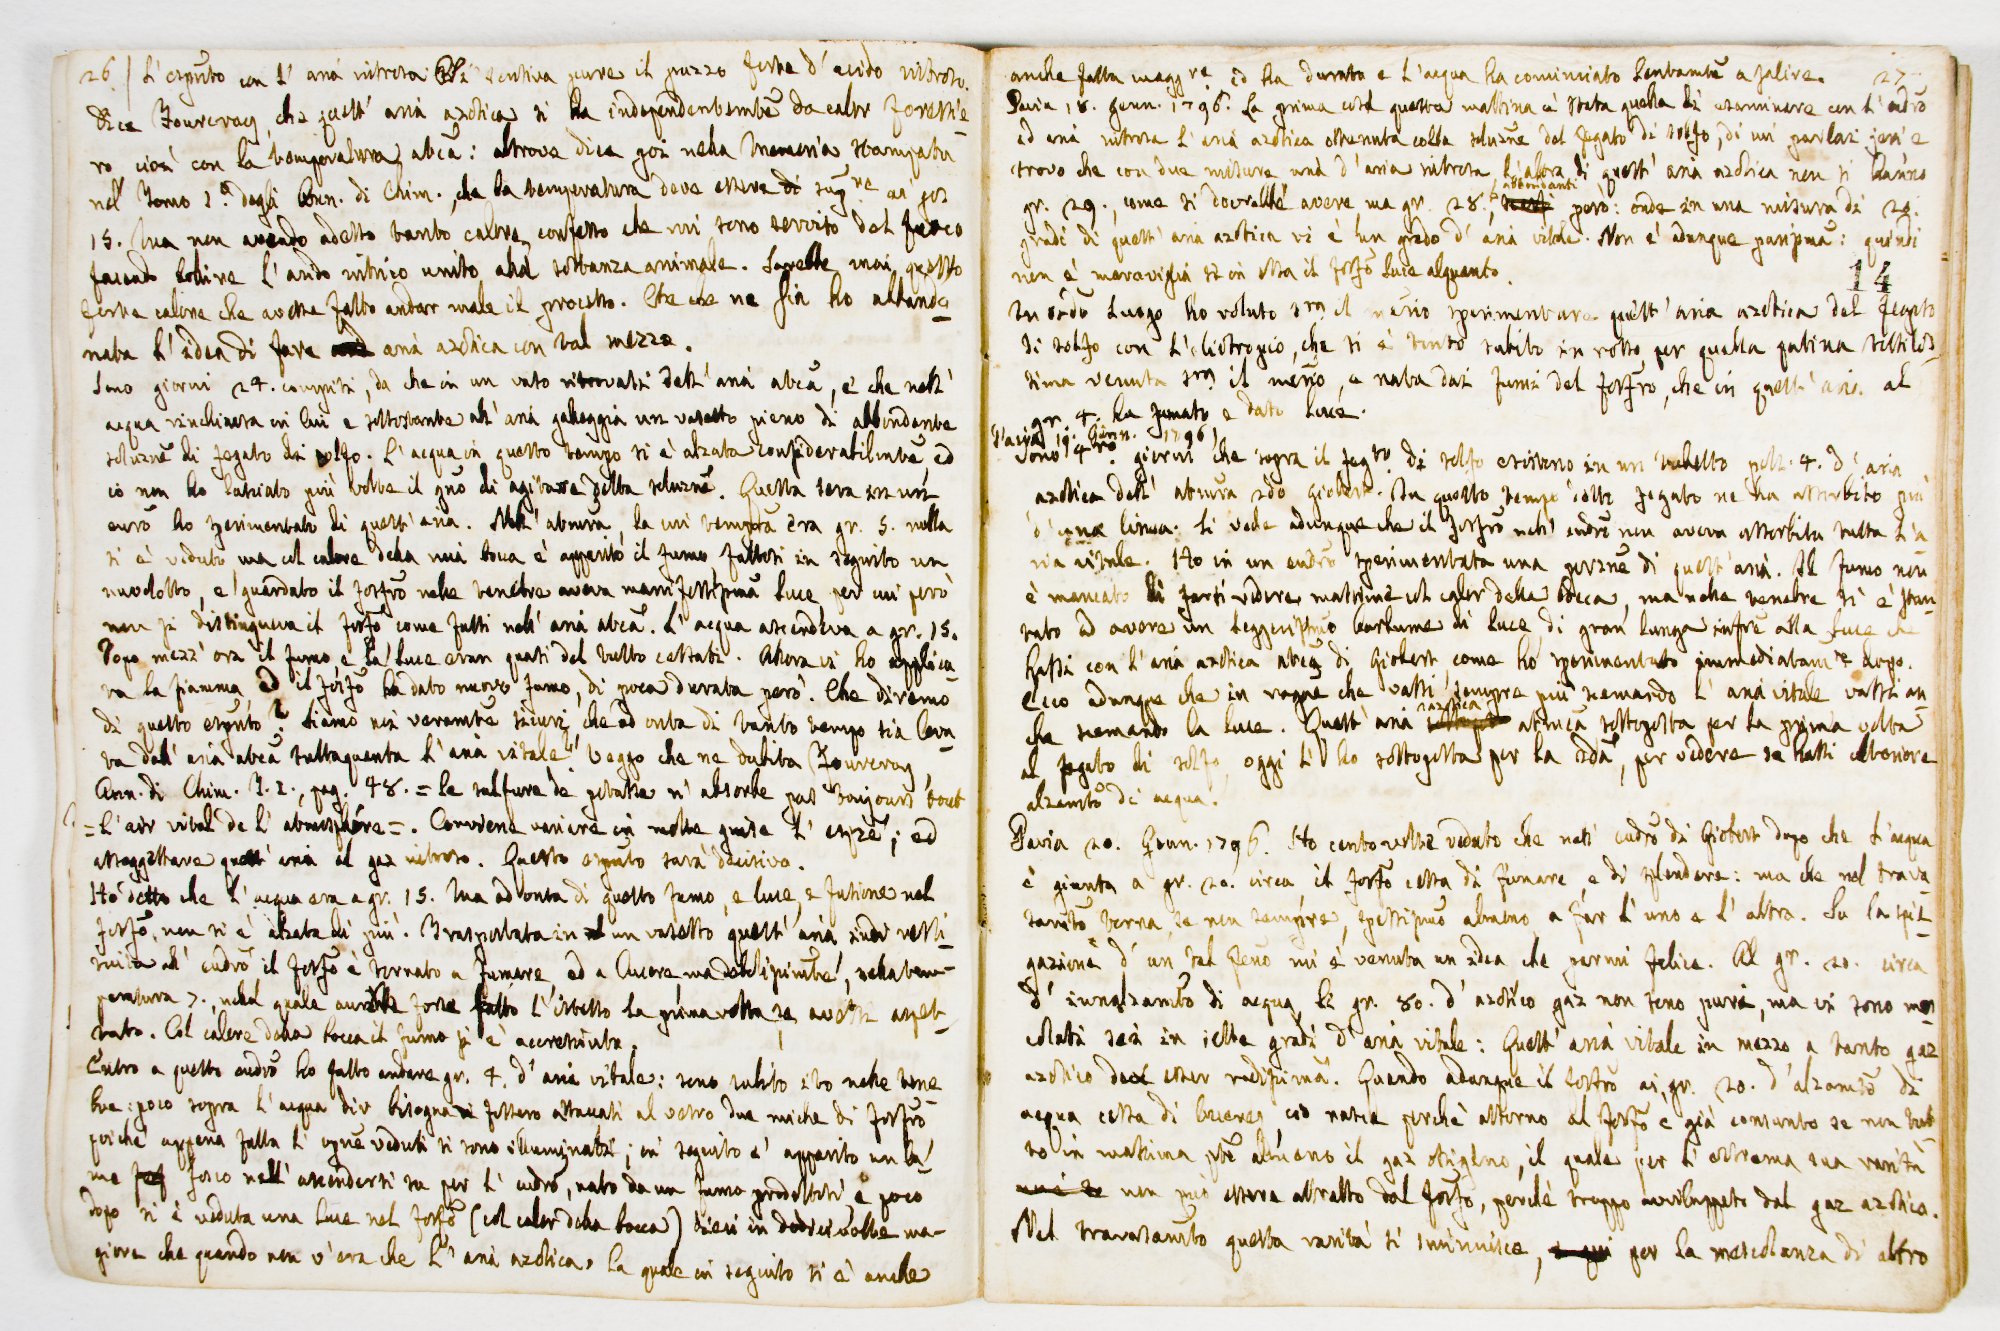 26.
L'esp.to con l'aria nitrosa. Si sentiva pure il puzzo forte d'acido nitroso.
Dice Fourcroy, che quest'aria azotica si ha independentem.te da calor forestie-
ro cioè con la temperatura atmca: altrove dice poi nella Memoria stampata
nel Tomo 1.o degli Ann. di Chim., che la temperatura deve essere di sup.re ai gr.
15. Ma non avendo adesso tanto calore confesso che mi sono servito del fuoco
facendo bollire l'acido nitrico unito alla sostanza animale. Sarebbe mai questo
forte calore che avesse fatto andar male il processo. Che che ne sia ho abbando-
nata l'idea di fare aria azotica con tal mezzo.
Sono giorni 24. compiti, da che in un vaso ritrovasi dell'aria atmca, e che nell'
acqua rinchiusa in lui e sottostante all'aria galleggia un vasetto pieno di abbondante
soluzne di fegato di solfo. L'acqua in questo tempo si è alzata considerabilmte, ed
io non ho lasciato più volte il gno di agitare detta soluzne. Questa sera in un
eudro ho sperimentato di quest'aria. Nell'atmsra, la cui tempra era gr. 5. nulla
si è veduto ma col calore della mia bocca è apparito il fumo fattosi in seguito un
nuvoletto, e guardato il fosfro nelle tenebre aveva manifestissma luce per cui però
non si distingueva il fosfro come fassi nell'aria atmca. L'acqua ascendeva a gr. 15.
Dopo mezz'ora il fumo e la luce eran quasi del tutto cessati. Allora vi ho applica-
ta la fiamma ed il fosfro ha dato nuovo fumo, di poca durata però. Che diremo
di questo espto? Siamo noi veramte sicuri, che ad onta di tanto tempo sia leva-
ta dall'aria atmca tuttaquanta l'aria vitale? Veggo che ne dubita Fourcroy,
Ann. di Chim. T. 1., pag. 48. = le sulfure de potasse n'absorbe pas toujours tout
= l'air vital de l'atmosphère =. Conviene variare in molte guise l'esprze; ed
assoggettare quest'aria al gaz nitroso. Questo espto sarà decisivo.
Ho detto che l'acqua era a gr. 15. Ma ad onta di questo fumo, e luce, e fusione nel
fosfro, non si è alzata di più. Trasportata in un vasetto quest'aria indi resti-
tuita all'eudro il fosfro è tornato a fumare, ed a lucere, ma debolissimte, nella tem-
peratura 7., nella quale avrebbe forse fatto l'istesso la prima volta se avessi aspet-
tato. Col calore della bocca il fumo si è accresciuto.
Entro a questo eudro ho fatto andare gr. 4. d'aria vitale: sono subito ito nelle tene-
bre: poco sopra l'acqua dir bisogna si fossero attaccati al vetro due miche di fosfro
poichè appena fatta l'unne veduti si sono illuminati; in seguito è apparito un lu-
me fosco nell'ascendersi su per l'eudro, nato da un fumo prodottosi e poco
dopo si è veduta una luce nel fosfro (col calor della bocca) dieci in dodici volte mag-
giore che quando non v'era che l'aria azotica, la quale in seguito si è anche
27.
anche fatta magg.re ed ha durato e l'acqua ha cominciato lentamte a salire.
Pavia 18. Genn. 1796. La prima cosa questa mattina è stata quella di esaminare con l'eudro
ed aria nitrosa l'aria azotica ottenuta colla soluzne del fegato di solfo, di cui parlai jeri e
trovo che con due misure una d'aria nitrosa l'altra di quest'aria azotica non si hanno
gr. 29., come si dovrebbe avere ma gr. 28., abbondanti però: onde in una misura di 20.
gradi di quest'aria azotica vi è un grado d'aria vitale. Non è adunque purissma: quindi
non è meraviglia se in essa il fosfro luce alquanto.
14
In scdo luogo ho voluto sperimentare quest'aria azotica del fegato
di solfo con l'eliotropio, che si è tinto subito in rosso per quella patina sottilis-
sima venuta il merio, e nata dai fumi del fosfro, che in quest'aria al
gr. 4. ha fumato e dato luce.
Pavia 19. Genn. 1796.
Sono 4.ro giorni che sopra il fegto di solfo esisteva in un tubetto poll. 4. d'aria
azotica dell'atmsra 2do Giobert. In questo tempo detto fegato ne ha assorbito più
d'una linea. Si vede adunque che il fosfro nell'eudro non aveva assorbita tutta l'a-
ria vitale. Ho in un eudro sperimentata una porzne di quest'aria. Il fumo non
è mancato di farsi vedere massime col calor della bocca, ma nelle tenebre si è stan-
tato ad avere un leggerissmo barlume di luce di gran lunga infre alla luce che
hassi con l'aria azotica atmca di Giobert come ho sperimentato immediatamte dopo.
Ecco adunque che in ragne che vassi sempre più scemando l'aria vitale vassi an-
che scemando la luce. Quest'aria azotica atmca sottoposta per la prima volta
al fegato di solfo, oggi l'ho sottoposta per la 2da, per vedere se hassi ulteriore
alzamto di acqua.
Pavia 20. Genn. 1796. Ho cento volte veduto che nell'eudro di Giobert dopo che l'acqua
è giunta a gr. 20. circa il fosfro cessa di fumare, e di splendere: ma che nel trava-
samto torna, se non sempre, spessissmo almeno a far l'uno e l'altro. Su la spie-
gazione d'un tal feno mi è venuta un idea che parmi felice. Al gr. 20. circa
d'innalzamto di acqua li gr. 80. d'azotico gaz non sono puri, ma vi sono mes-
colati sei in sette gradi d'aria vitale: Quest'aria vitale in mezzo a tanto gaz
azotico deve esser radissima. Quando adunque il fosfro ai gr. 20. d'alzamto di
acqua cessa di lucere, ciò nasce perchè attorno al fosfro è già consunto se non tut-
to in massima pte almeno il gaz ossigeno, il quale per l'estrema sua rarità
non può essere attratto dal fosfro, perchè troppo avviluppato dal gaz azotico.
Nel travasamto questa rarità si sminuisce, per la mescolanza di altro